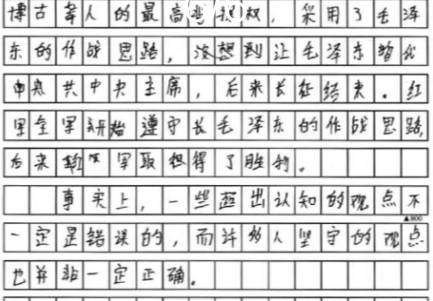 博古等人的最高指挥权，采用了毛泽
东的作战思路，没想到让毛泽东智化
中央共中央主席，后来长征结束。红
军全军开始遵守长毛泽东的作战思路，
后来红军取得了胜利。
事实上，一些超出认知的观点不
▲800
一定是错误的，而许多人坚守的观点
也并非一定正确。